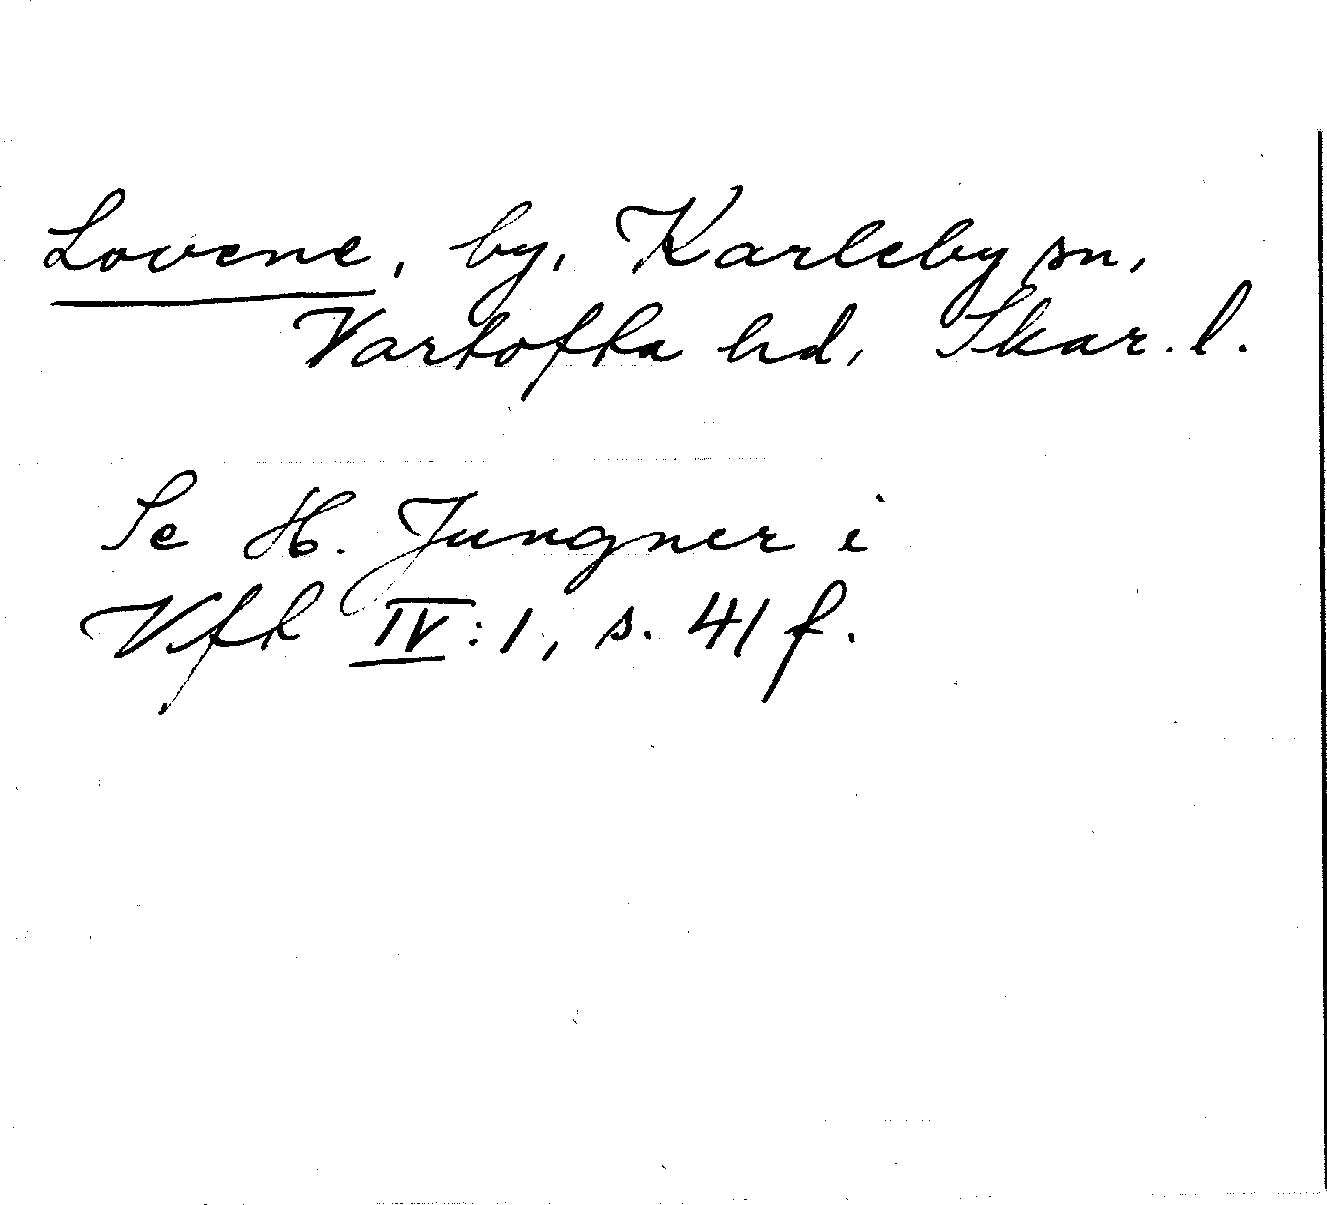 Lovene, by, Karleby sn,
Vartofta hd, Skar. l.
Se H. Jungner i
Vft IV:1, s. 41 f.